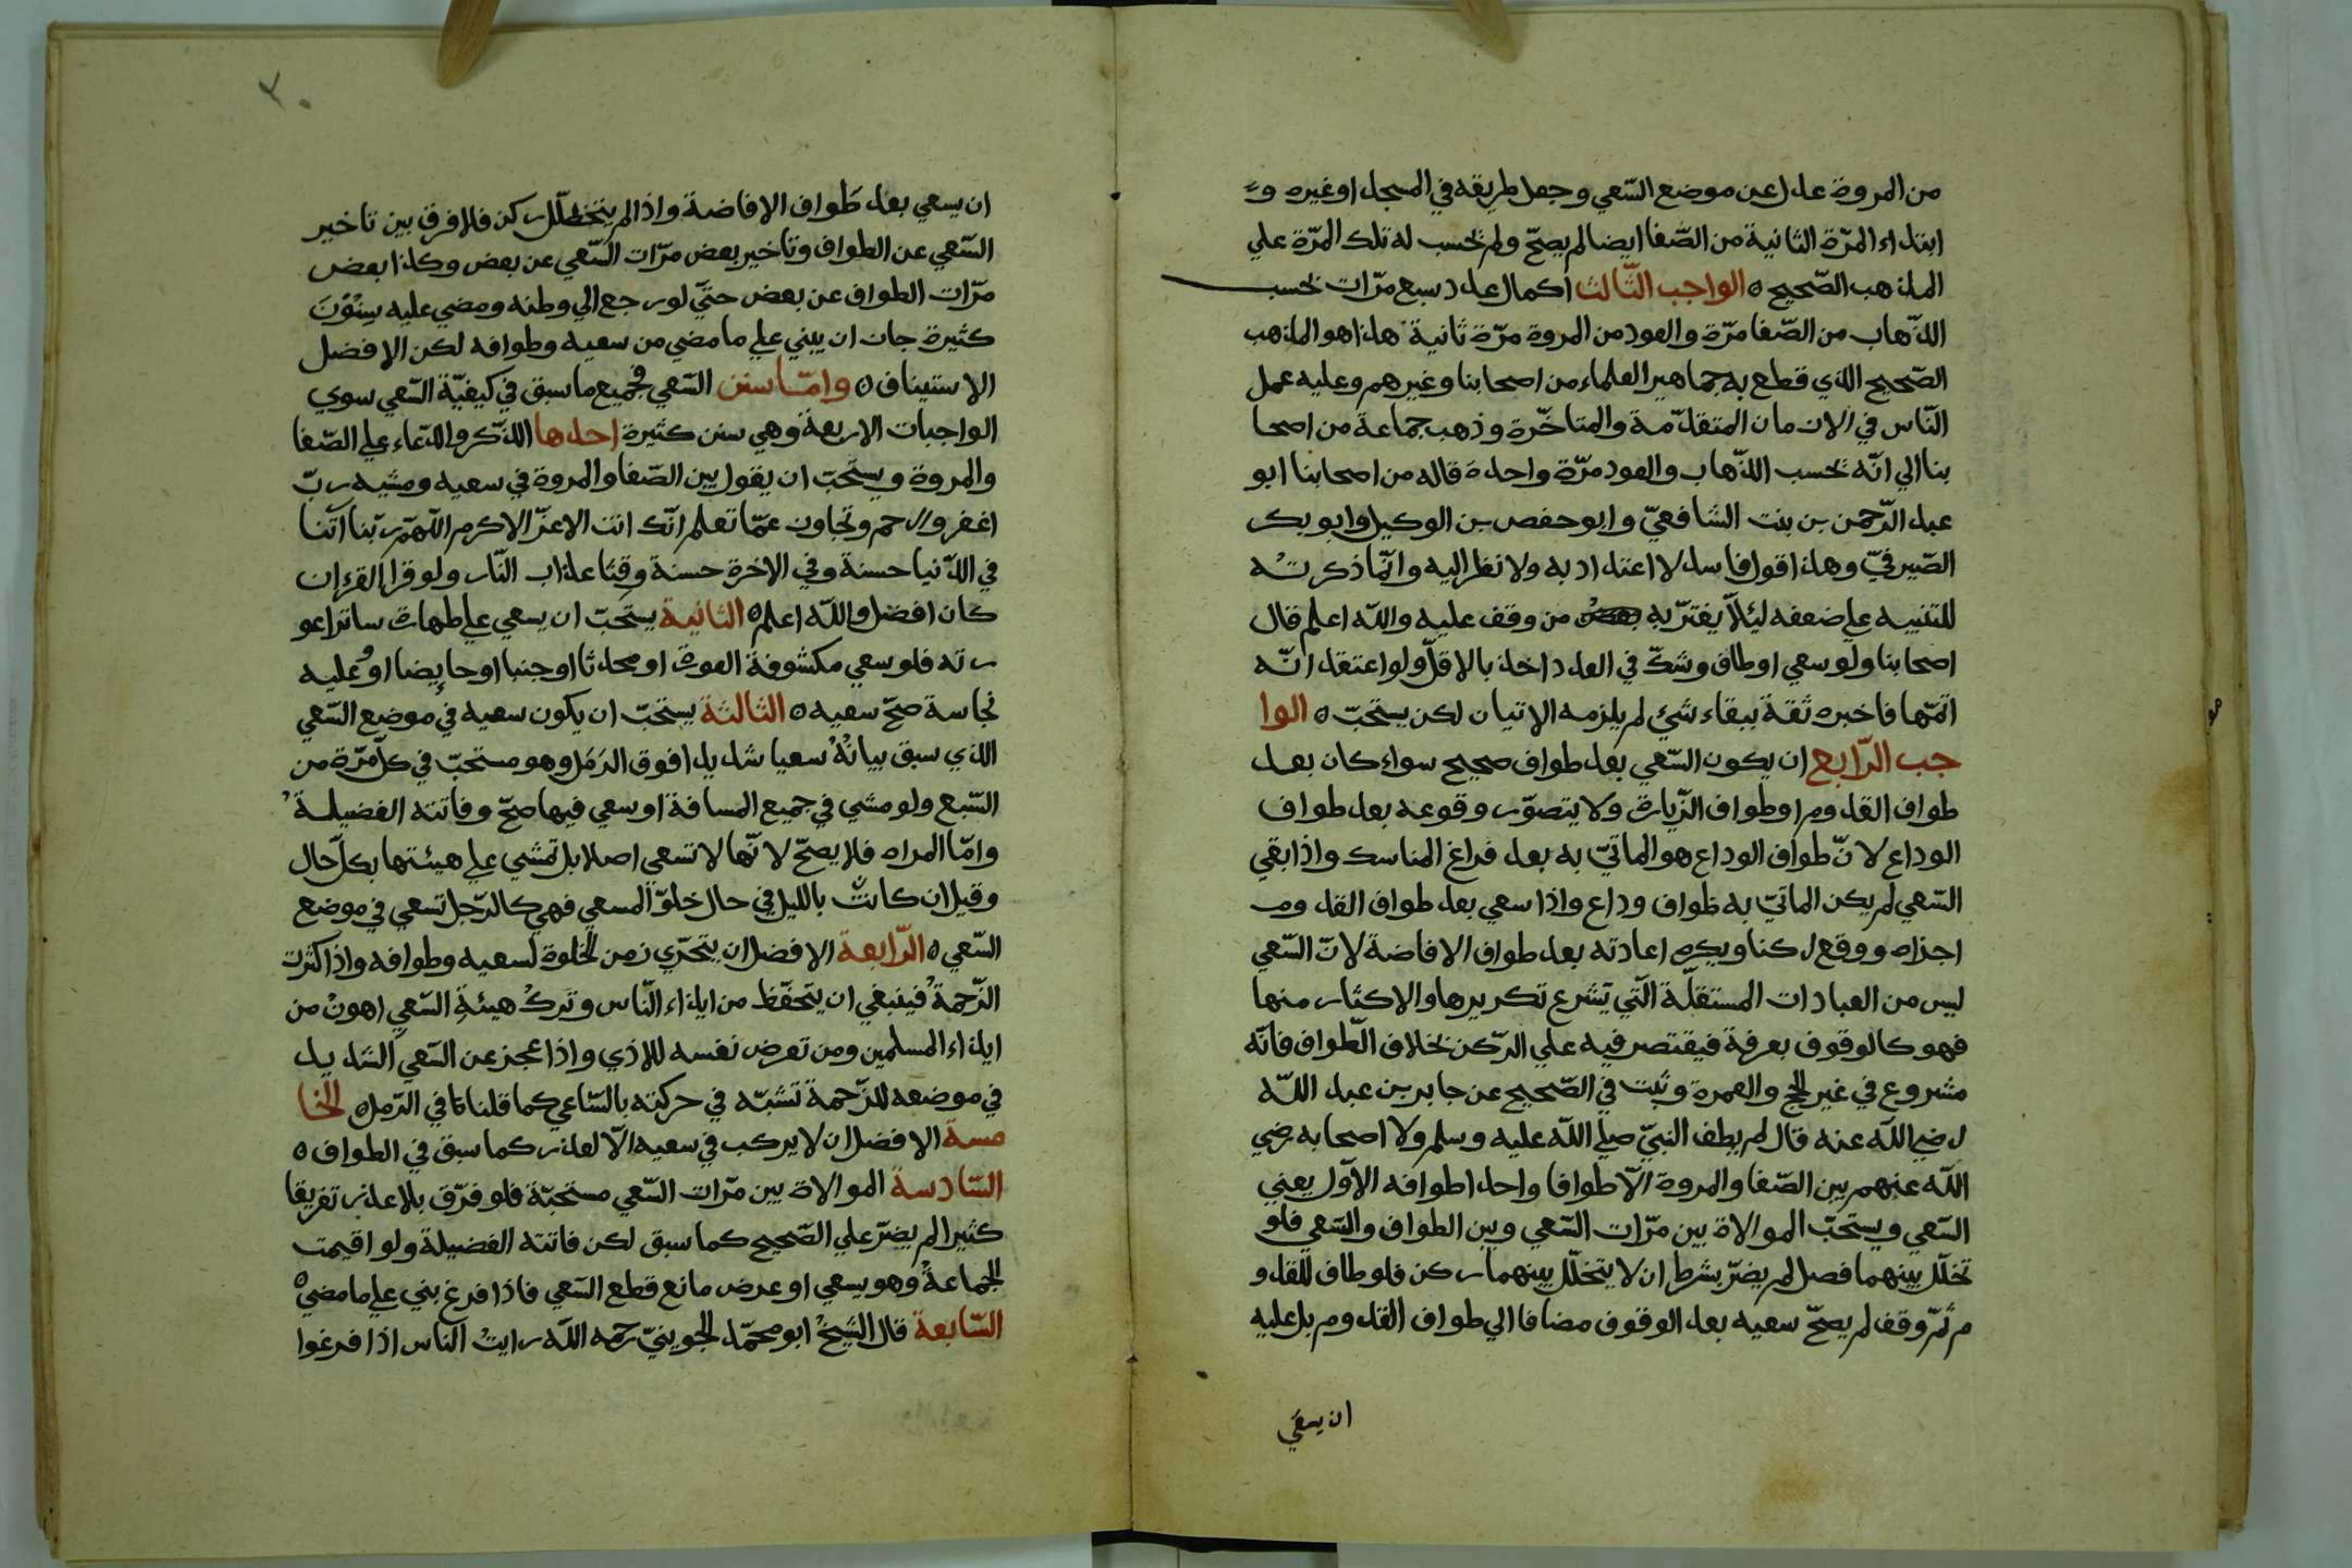 من المروة عدل عن موضع السّعي وجعل طريقه في المسجد اوغيره و
ابتداء المرّة الثانية من الصّفا ايضا لم يصحّ ولم تحسب له تلك المرّة علي
المذهب الصّحيح ٥ الواجب الثّالث اكمال عدد سبع مرّات تحسب
الذّهاب من الصّفا مرّة والعود من المروة مرّة ثانية هذا هو المذهب
الصّحيح الذي قطع به جماهير العلماء من اصحابنا وغيرهم وعليه عمل
النّاس في الازمان المتقدّمة والمتاخّرة وذهب جماعة من اصحا
بنا الي انّه تحسب الذّهاب والعود مرّة واحدة قاله من اصحابنا ابو
عبد الرّحمن بن بنت الشافعيّ وابو حفص بن الوكيل وابو بكر
الصّيرفيّ وهذا قول فاسد لا اعتداد به ولا نظر اليه وانّما ذكرتُه
للتنبيه علي ضعفه لئلّا يغترّ به من وقف عليه والله اعلم قال
اصحابنا ولو سعي اوطاف وشكّ في العدد اخذ بالاقلّ ولو اعتقد انّه
اتمّها فاخبره ثقة ببقاء شئ لم يلزمه الاتيان لكن يستحبّ ٥ الوا
جب الرّابع ان يكون السّعي بعد طواف صحيح سواء كان بعد
طواف القدوم او طواف الزّيارة ولا يتصوّر وقوعه بعد طواف
الوداع لانّ طواف الوداع هو الماتيّ به بعد فراغ المناسك واذا بقي
السّعي لم يكن الماتيّ به طواف وداع واذا سعي بعد طواف القدوم
اجزاه ووقع ركنا ويكره اعادته بعد طواف الافاضة لانّ السّعي
ليس من العبادات المستقلّة الّتي تشرع تكريرها والاكثار منها
فهو كالوقوف بعرفة فيقتصر فيه علي الرّكن بخلاف الطّواف فانّه
مشروع في غير الحج والعمرة وثبت في الصّحيح عن جابر بن عبد اللّه
رضي اللّه عنه قال لم يطف النبيّ صلي اللّه عليه وسلم ولا اصحابه رضي
اللّه عنهم بين الصّفا والمروة الّا طوافا واحدا طوافه الاوّل يعني
السّعي ويستحبّ الموالاة بين مرّات السّعي وبين الطواف والسّعي فلو
تخلّل بينهما فصل لم يضرّ بشرط ان لا يتخلّل بينهما ركن فلو طاف للقدو
م ثمّ وقف لم يصحّ سعيه بعد الوقوف مضافا الي طواف القدوم بل عليه
ان يسعي
ان يسعي بعد طَواف الافاضة واذا لم يتخلّل ركن فلا فرق بين تاخير
السّعي عن الطواف وتاخير بعض مرّات السّعي عن بعض وكذا بعض
مرّات الطواف عن بعض حتّي لو رجع الي وطنه ومضي عليه سِنُوْنَ
كثيرة جاز ان يبني علي ما مضي من سعيه وطوافه لكن الافضل
الاستيناف ٥ وامّا سنن السّعي فجميع ما سبق في كيفيّة السّعي سوي
الواجبات الاربعة وهي سنن كثيرة احدها الذّكر والدّعاء علي الصّفا
والمروة ويستحبّ ان يقول بين الصّفا والمروة في سعيه ومشيه ربّ
اغفر وارحم وتجاوز عمّا تعلم انّك انت الاعزّ الاكرم اللّهمّ ربّنا اتّنا
في الدّنيا حسنة وفي الاخرة حسنة وقِنا عذاب النّار ولو قرا القرءان
كان افضل واللّه اعلم ٥ الثانية يستحبّ ان يسعي علي طهارة ساترا عو
رته فلو سعي مكشوفة العورة او محدثا او جنبا او حايضا او عليه
نجاسة صحّ سعيه ٥ الثالثة يستحبّ ان يكون سعيه في موضع السّعي
الذي سبق بيانُهُ سعيا شديدا فوق الرّمَل وهو مستحبّ في كلّ مرّة من
السّبع ولو مشي في جميع المسافة او سعي فيها صحّ وفاتته الفضيلةُ
وامّا المراه فلا يصحّ لانّها لا تسعي اصلا بل تمشي علي هيئتها بكلّ حال
وقيل ان كانتْ بالليل في حال خلوّ المسعي فهي كالرّجل تسعي في موضع
السّعي ٥ الرّابعة الافضل ان يتحرّي زمن الخلوة لسعيه وطوافه واذا كثرت
الزّحمةُ فينبغي ان يتحفّظ من ايذاء النّاس وتَركُ هيئةِ السّعي اهونُ من
ايذاء المسلمين ومن تعرض نفسه للاذي واذا عجز عن السّعي الشديد
في موضعه للزّحمة تشبّه في حركته بالسّاعي كما قلنا في الرّمل ٥ الخا
مسة الافضل ان لا يركب في سعيه الّا لعذر كما سبق في الطواف ٥
السّادسة الموالاة بين مرّات السّعي مستحبّة فلو فرّق بلا عذر تفريقا
كثيرا لم يضرّ علي الصّحيح كما سبق لكن فاتته الفضيلة ولو اقيمت
الجماعةُ وهو يسعي او عرض مانع قطع السّعي فاذا فرغ بني علي ما مضي ٥
السّابعة قال الشّيخُ ابو محمّد الجوينيّ رحمه اللّه رايتُ النّاس اذا فرغوا